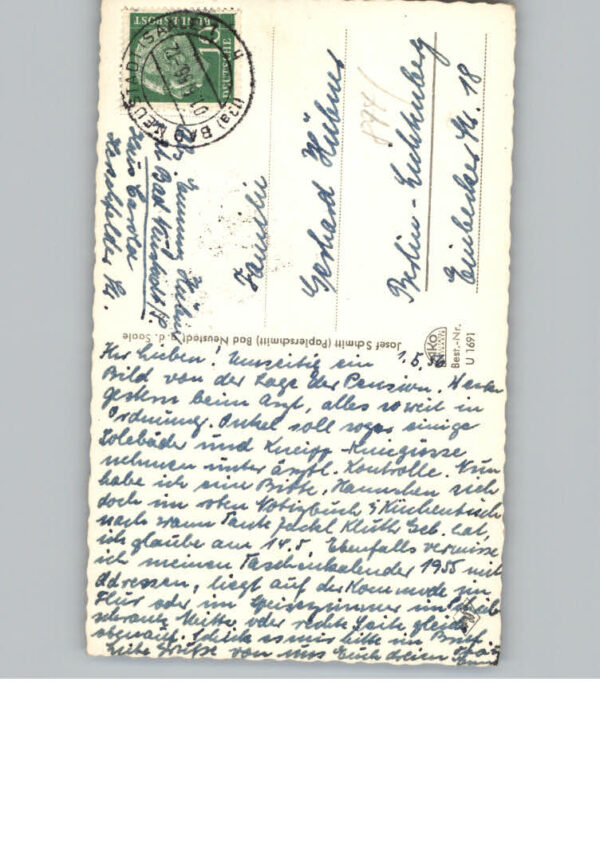 1.5.56
Ihr Lieben! Umseitig ein
Bild von der Lage der Pension. Waren
gestern beim Arzt, alles soweit in
Ordnung. Onkel soll sogar einige
Solebäder und Kneipp-Kniegüsse
nehmen unter ärztl. Kontrolle. Nun
habe ich eine Bitte, Hannchen sieh
doch im roten Notizbuch i/Küchentisch
nach wann Tante Jackel Kluth Geb. hat,
ich glaube am 14.5. Ebenfalls vermisse
ich meinen Taschenkalender 1955 mit
Adressen, liegt auf der Kommode im
Flur oder im Speisezimmer im
schrank Mitte oder rechte Seite gleich
obenauf. Schickt es mir bitte im Brief.
Liebe Grüße von uns Euch dreien
Josef Schmitt (Papierschmitt) Bad Neustadt a. d. Saale
Best.-Nr.
U 1691
BUNDESPOST
10
(13a) BAD NEUSTADT (SAALE)
Bad Neustadt
Haus Carola
Familie
Gerhard Hübner
Berlin-Lichtenberg
Einbecker Str. 18